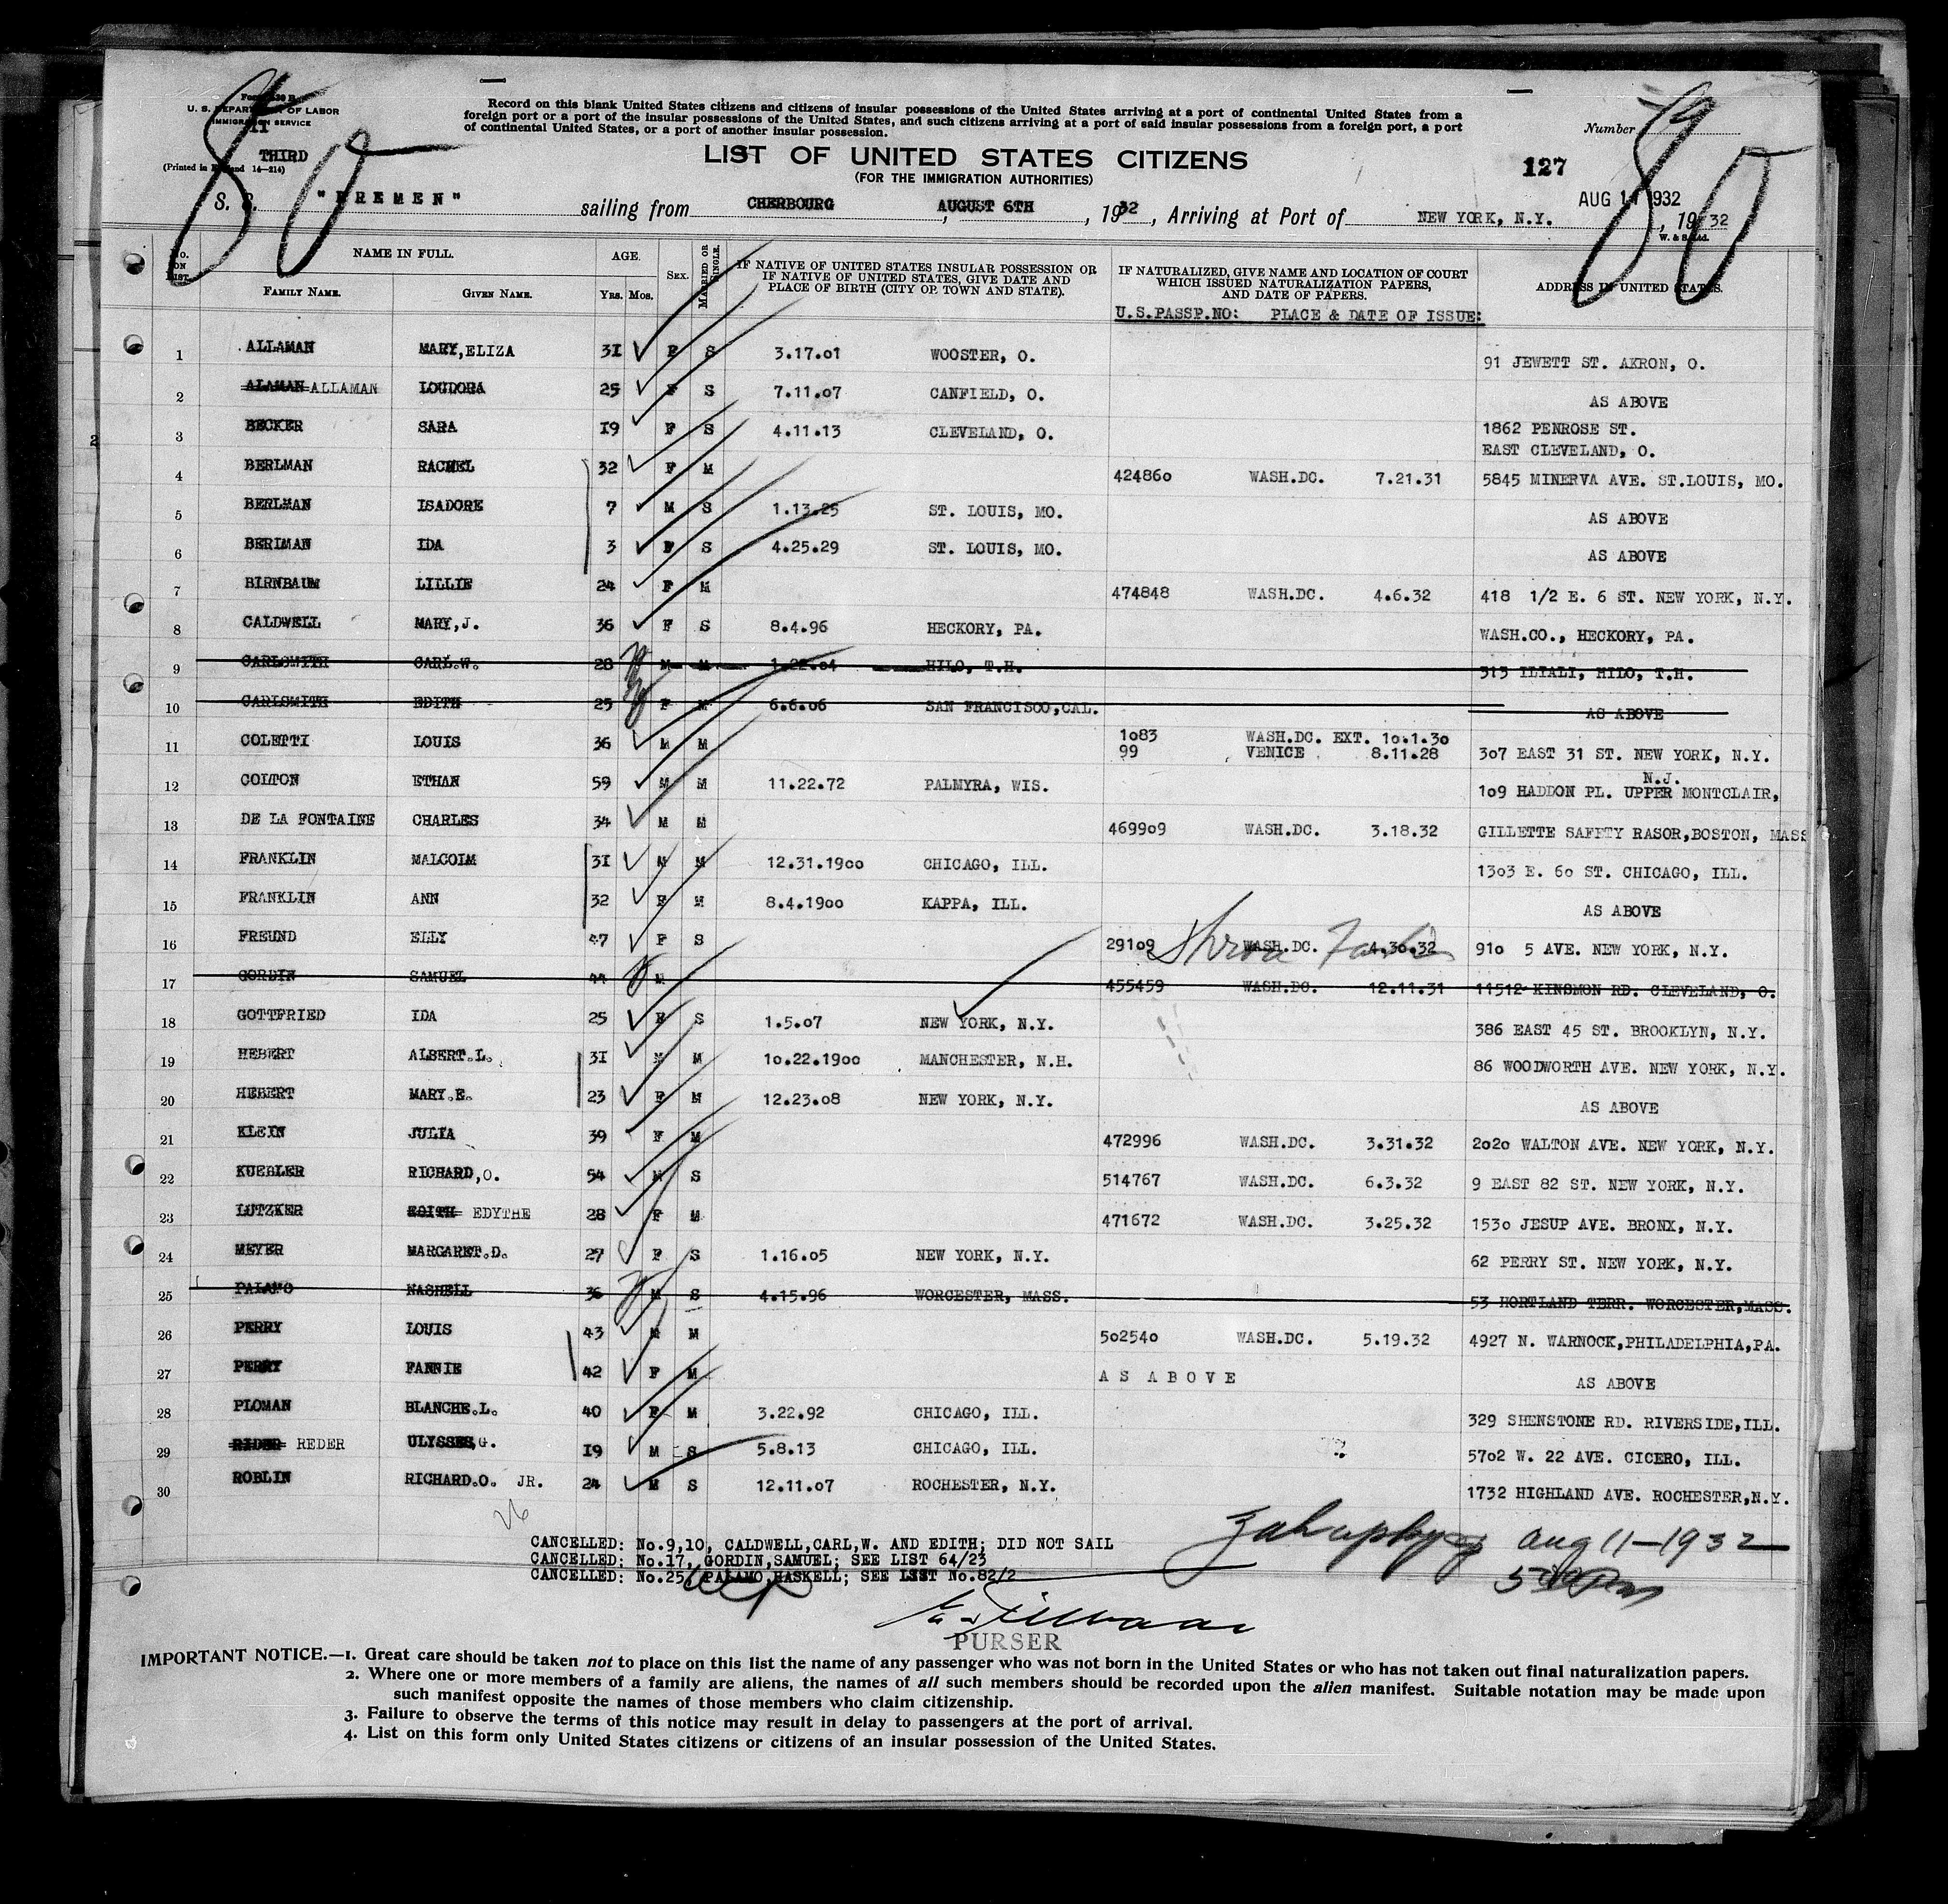 Form 630 B
U. S. DEPARTMENT OF LABOR
IMMIGRATION SERVICE
II
THIRD
(Printed in England 14—214)
80
Record on this blank United States citizens and citizens of insular possessions of the United States arriving at a port of continental United States from a
foreign port or a port of the insular possessions of the United States, and such citizens arriving at a port of said insular possessions from a foreign port, a port
of continental United States, or a port of another insular possession.
Number
LIST OF UNITED STATES CITIZENS
(FOR THE IMMIGRATION AUTHORITIES)
127
80
S. S. "BREMEN" sailing from CHERBOURG, AUGUST 6TH, 1932, Arriving at Port of NEW YORK, N.Y. AUG 11 1932, 1932
W. & S. Ltd.
No. ON LIST. NAME IN FULL. AGE. SEX. MARRIED OR SINGLE. IF NATIVE OF UNITED STATES INSULAR POSSESSION OR IF NATIVE OF UNITED STATES, GIVE DATE AND PLACE OF BIRTH (CITY OR TOWN AND STATE). IF NATURALIZED, GIVE NAME AND LOCATION OF COURT WHICH ISSUED NATURALIZATION PAPERS, AND DATE OF PAPERS. ADDRESS IN UNITED STATES.
FAMILY NAME. GIVEN NAME. YRS. MOS. U.S.PASSP.NO: PLACE & DATE OF ISSUE:
1 ALLAMAN MARY,ELIZA 31 F S 3.17.01 WOOSTER, O. 91 JEWETT ST. AKRON, O.
2 ALAMAN ALLAMAN LOUDORA 25 F S 7.11.07 CANFIELD, O. AS ABOVE
3 BECKER SARA 19 F S 4.11.13 CLEVELAND, O. 1862 PENROSE ST.
EAST CLEVELAND, O.
4 BERLMAN RACHEL 32 F M 424860 WASH.DC. 7.21.31 5845 MINERVA AVE. ST.LOUIS, MO.
5 BERLMAN ISADORE 7 M S 1.13.25 ST. LOUIS, MO. AS ABOVE
6 BERLMAN IDA 3 F S 4.25.29 ST. LOUIS, MO. AS ABOVE
7 BIRNBAUM LILLIE 24 F M 474848 WASH.DC. 4.6.32 418 1/2 E. 6 ST. NEW YORK, N.Y.
8 CALDWELL MARY,J. 36 F S 8.4.96 HECKORY, PA. WASH.CO., HECKORY, PA.
9 CARLSMITH CARL.W. 28 M M 1.22.04 HILO, T.H. 313 ILIALI, HILO, T.H.
10 CARLSMITH EDITH 25 F M 6.6.06 SAN FRANCISCO,CAL. AS ABOVE
11 COLETTI LOUIS 36 M M 1083 WASH.DC. EXT. 10.1.30
99 VENICE 8.11.28 307 EAST 31 ST. NEW YORK, N.Y.
12 COLTON ETHAN 59 M M 11.22.72 PALMYRA, WIS. 109 HADDON PL. UPPER MONTCLAIR, N.J.
13 DE LA FONTAINE CHARLES 34 M M 469909 WASH.DC. 3.18.32 GILLETTE SAFETY RASOR,BOSTON, MASS
14 FRANKLIN MALCOLM 31 M M 12.31.1900 CHICAGO, ILL. 1303 E. 60 ST. CHICAGO, ILL.
15 FRANKLIN ANN 32 F M 8.4.1900 KAPPA, ILL. AS ABOVE
16 FREUND ELLY 47 F S 29109 WASH.DC. 4.30.32 910 5 AVE. NEW YORK, N.Y.
17 GORDIN SAMUEL 44 M 455459 WASH.DC. 12.11.31 11512 KINSMON RD. CLEVELAND, O.
18 GOTTFRIED IDA 25 F S 1.5.07 NEW YORK, N.Y. 386 EAST 45 ST. BROOKLYN, N.Y.
19 HEBERT ALBERT.L. 31 M M 10.22.1900 MANCHESTER, N.H. 86 WOODWORTH AVE. NEW YORK, N.Y.
20 HEBERT MARY.E. 23 F M 12.23.08 NEW YORK, N.Y. AS ABOVE
21 KLEIN JULIA 39 F M 472996 WASH.DC. 3.31.32 2020 WALTON AVE. NEW YORK, N.Y.
22 KUEBLER RICHARD,O. 54 M S 514767 WASH.DC. 6.3.32 9 EAST 82 ST. NEW YORK, N.Y.
23 LUTZKER EDITH EDYTHE 28 F M 471672 WASH.DC. 3.25.32 1530 JESUP AVE. BRONX, N.Y.
24 MEYER MARGARET.D. 27 F S 1.16.05 NEW YORK, N.Y. 62 PERRY ST. NEW YORK, N.Y.
25 PALAMO HASKELL 36 M S 4.15.96 WORCESTER, MASS. 53 HORTLAND TERR. WORCESTER,MASS.
26 PERRY LOUIS 43 M M 502540 WASH.DC. 5.19.32 4927 N. WARNOCK,PHILADELPHIA,PA.
27 PERRY FANNIE 42 F M AS ABOVE AS ABOVE
28 PLOMAN BLANCHE.L. 40 F M 3.22.92 CHICAGO, ILL. 329 SHENSTONE RD. RIVERSIDE,ILL.
29 RIDER REDER ULYSSES,G. 19 M S 5.8.13 CHICAGO, ILL. 5702 W. 22 AVE. CICERO, ILL.
30 ROBLIN RICHARD.O. JR. 24 M S 12.11.07 ROCHESTER, N.Y. 1732 HIGHLAND AVE. ROCHESTER,N.Y.
26
CANCELLED: No.9,10, CALDWELL,CARL,W. AND EDITH; DID NOT SAIL
CANCELLED: No.17, GORDIN,SAMUEL; SEE LIST 64/23
CANCELLED: No.25, PALAMO,HASKELL; SEE LIST No.82/2
Aug 11-1932
PURSER
IMPORTANT NOTICE.—1. Great care should be taken not to place on this list the name of any passenger who was not born in the United States or who has not taken out final naturalization papers.
2. Where one or more members of a family are aliens, the names of all such members should be recorded upon the alien manifest. Suitable notation may be made upon
such manifest opposite the names of those members who claim citizenship.
3. Failure to observe the terms of this notice may result in delay to passengers at the port of arrival.
4. List on this form only United States citizens or citizens of an insular possession of the United States.